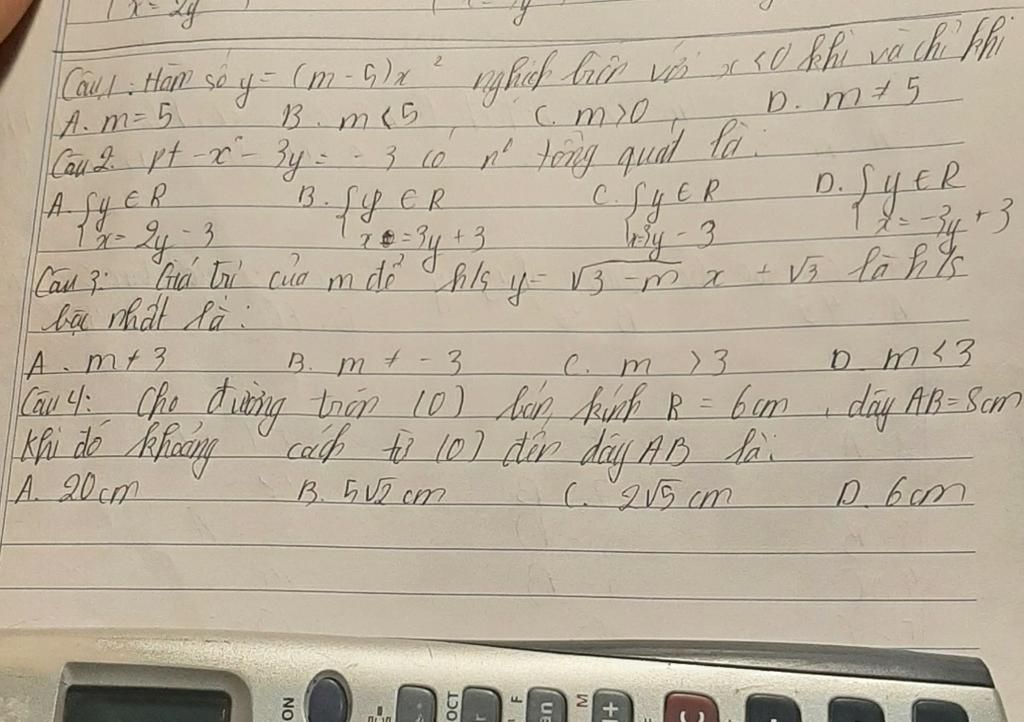 x = 2y
Câu 1: Hàm số y = (m - 5)x² nghịch biến với x < 0 khi và chỉ khi
A. m = 5 B. m < 5 C. m > 0 D. m ≠ 5
Câu 2. pt -x - 3y = -3 có n⁰ tổng quát là:
A. {y ∈ R B. {y ∈ R C. {y ∈ R D. {y ∈ R
x = 2y - 3 x = 3y + 3 x=3y - 3 x = -3y + 3
Câu 3: Giá trị của m để h/s y = √3 - m x + √3 là h/s
bậc nhất là:
A. m ≠ 3 B. m ≠ - 3 C. m > 3 D. m < 3
Câu 4: Cho đường tròn (O) bán kính R = 6cm, dây AB = 8cm
Khi đó khoảng cách từ (O) đến dây AB là:
A. 20cm B. 5√2 cm C. 2√5 cm D. 6cm
ON OCT F M